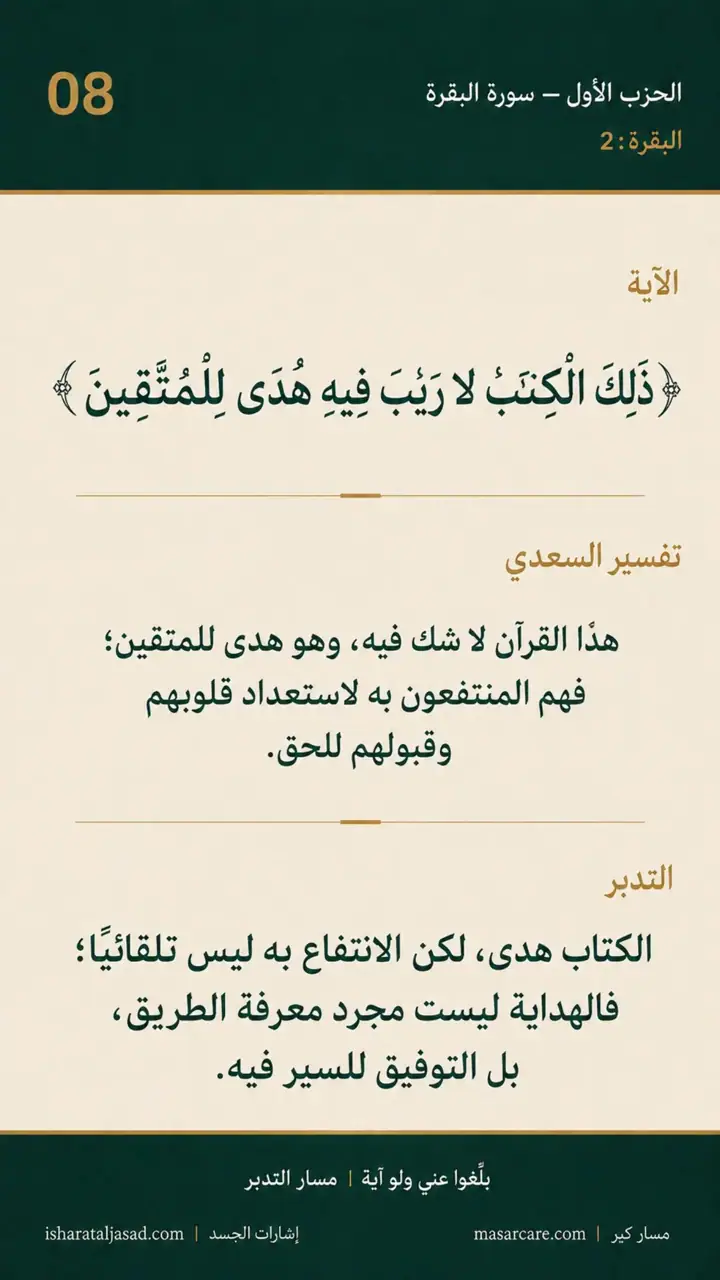 08
الحزب الأول – سورة البقرة
البقرة: 2
الآية
﴿ذَلِكَ الْكِتَٰبُ لا رَيْبَ فِيهِ هُدَى لِلْمُتَّقِينَ﴾
تفسير السعدي
هذا القرآن لا شك فيه، وهو هدى للمتقين؛
فهم المنتفعون به لاستعداد قلوبهم
وقبولهم للحق.
التدبر
الكتاب هدى، لكن الانتفاع به ليس تلقائيًا؛
فالهداية ليست مجرد معرفة الطريق،
بل التوفيق للسير فيه.
بلِّغوا عني ولو آية | مسار التدبر
مسار كير | masarcare.com
إشارات الجسد | isharataljasad.com